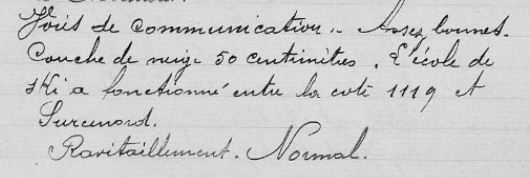 Voies de communication .. Assez bonnes.
Couche de neige 50 centimètres. L'école de
ski a fonctionné entre la cote 1119 et
Surcenord.
Ravitaillement. Normal.